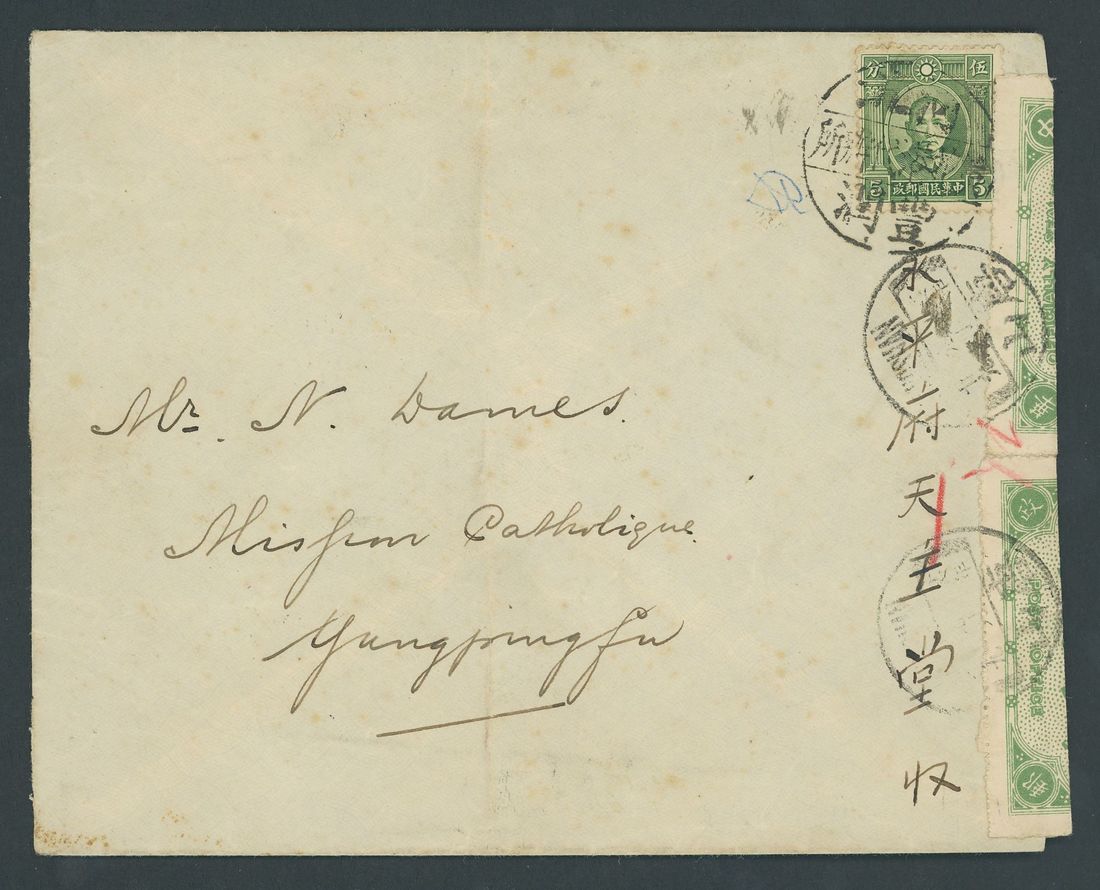 伍分
5 中華民國郵政 5
豐潤
Mr. N. Dames.
Mission Catholique.
Yungpingfu
永平府天主堂收
POST OFFICE
政